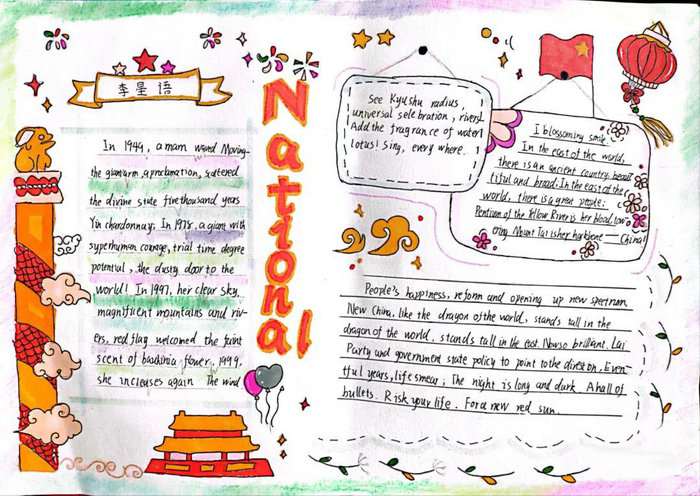 李星语
In 1949, a mam waved Moving
the giant arm, a proclamation, scattered
the divine state five thousand years
Yin chardonnay. In 1978, a giant with
superhuman courage, trial time degree
potential, the dusty door to the
world! In 1997, her clear sky,
magnificent mountains and riv-
ers, red flag welcomed the faint
scent of bauhinia flower. 1999,
she increases again The wind
National
See Kyushu radius,
universal selebration, rivers
Add the fragrance of water
lotus! Sing, every where. !
I blossoming smile.
In the east of the world,
there is an ancient country, beaut
tiful and broad. In the east of the
world, there is a great people:
of the Yellow River is her blood, tow-
ering Mount Tai is her
China!
People's happiness, reform and opening up new spectrum,
New China, like the dragon of the world, stands tall in the
dragon of the world, stands tall in the east. Nowso brillant. Lai
Party and government state policy to point to the direction. Even-
tful years, life smear; The night is long and dark A hall of
bullets. Risk your life. For a new red sun.